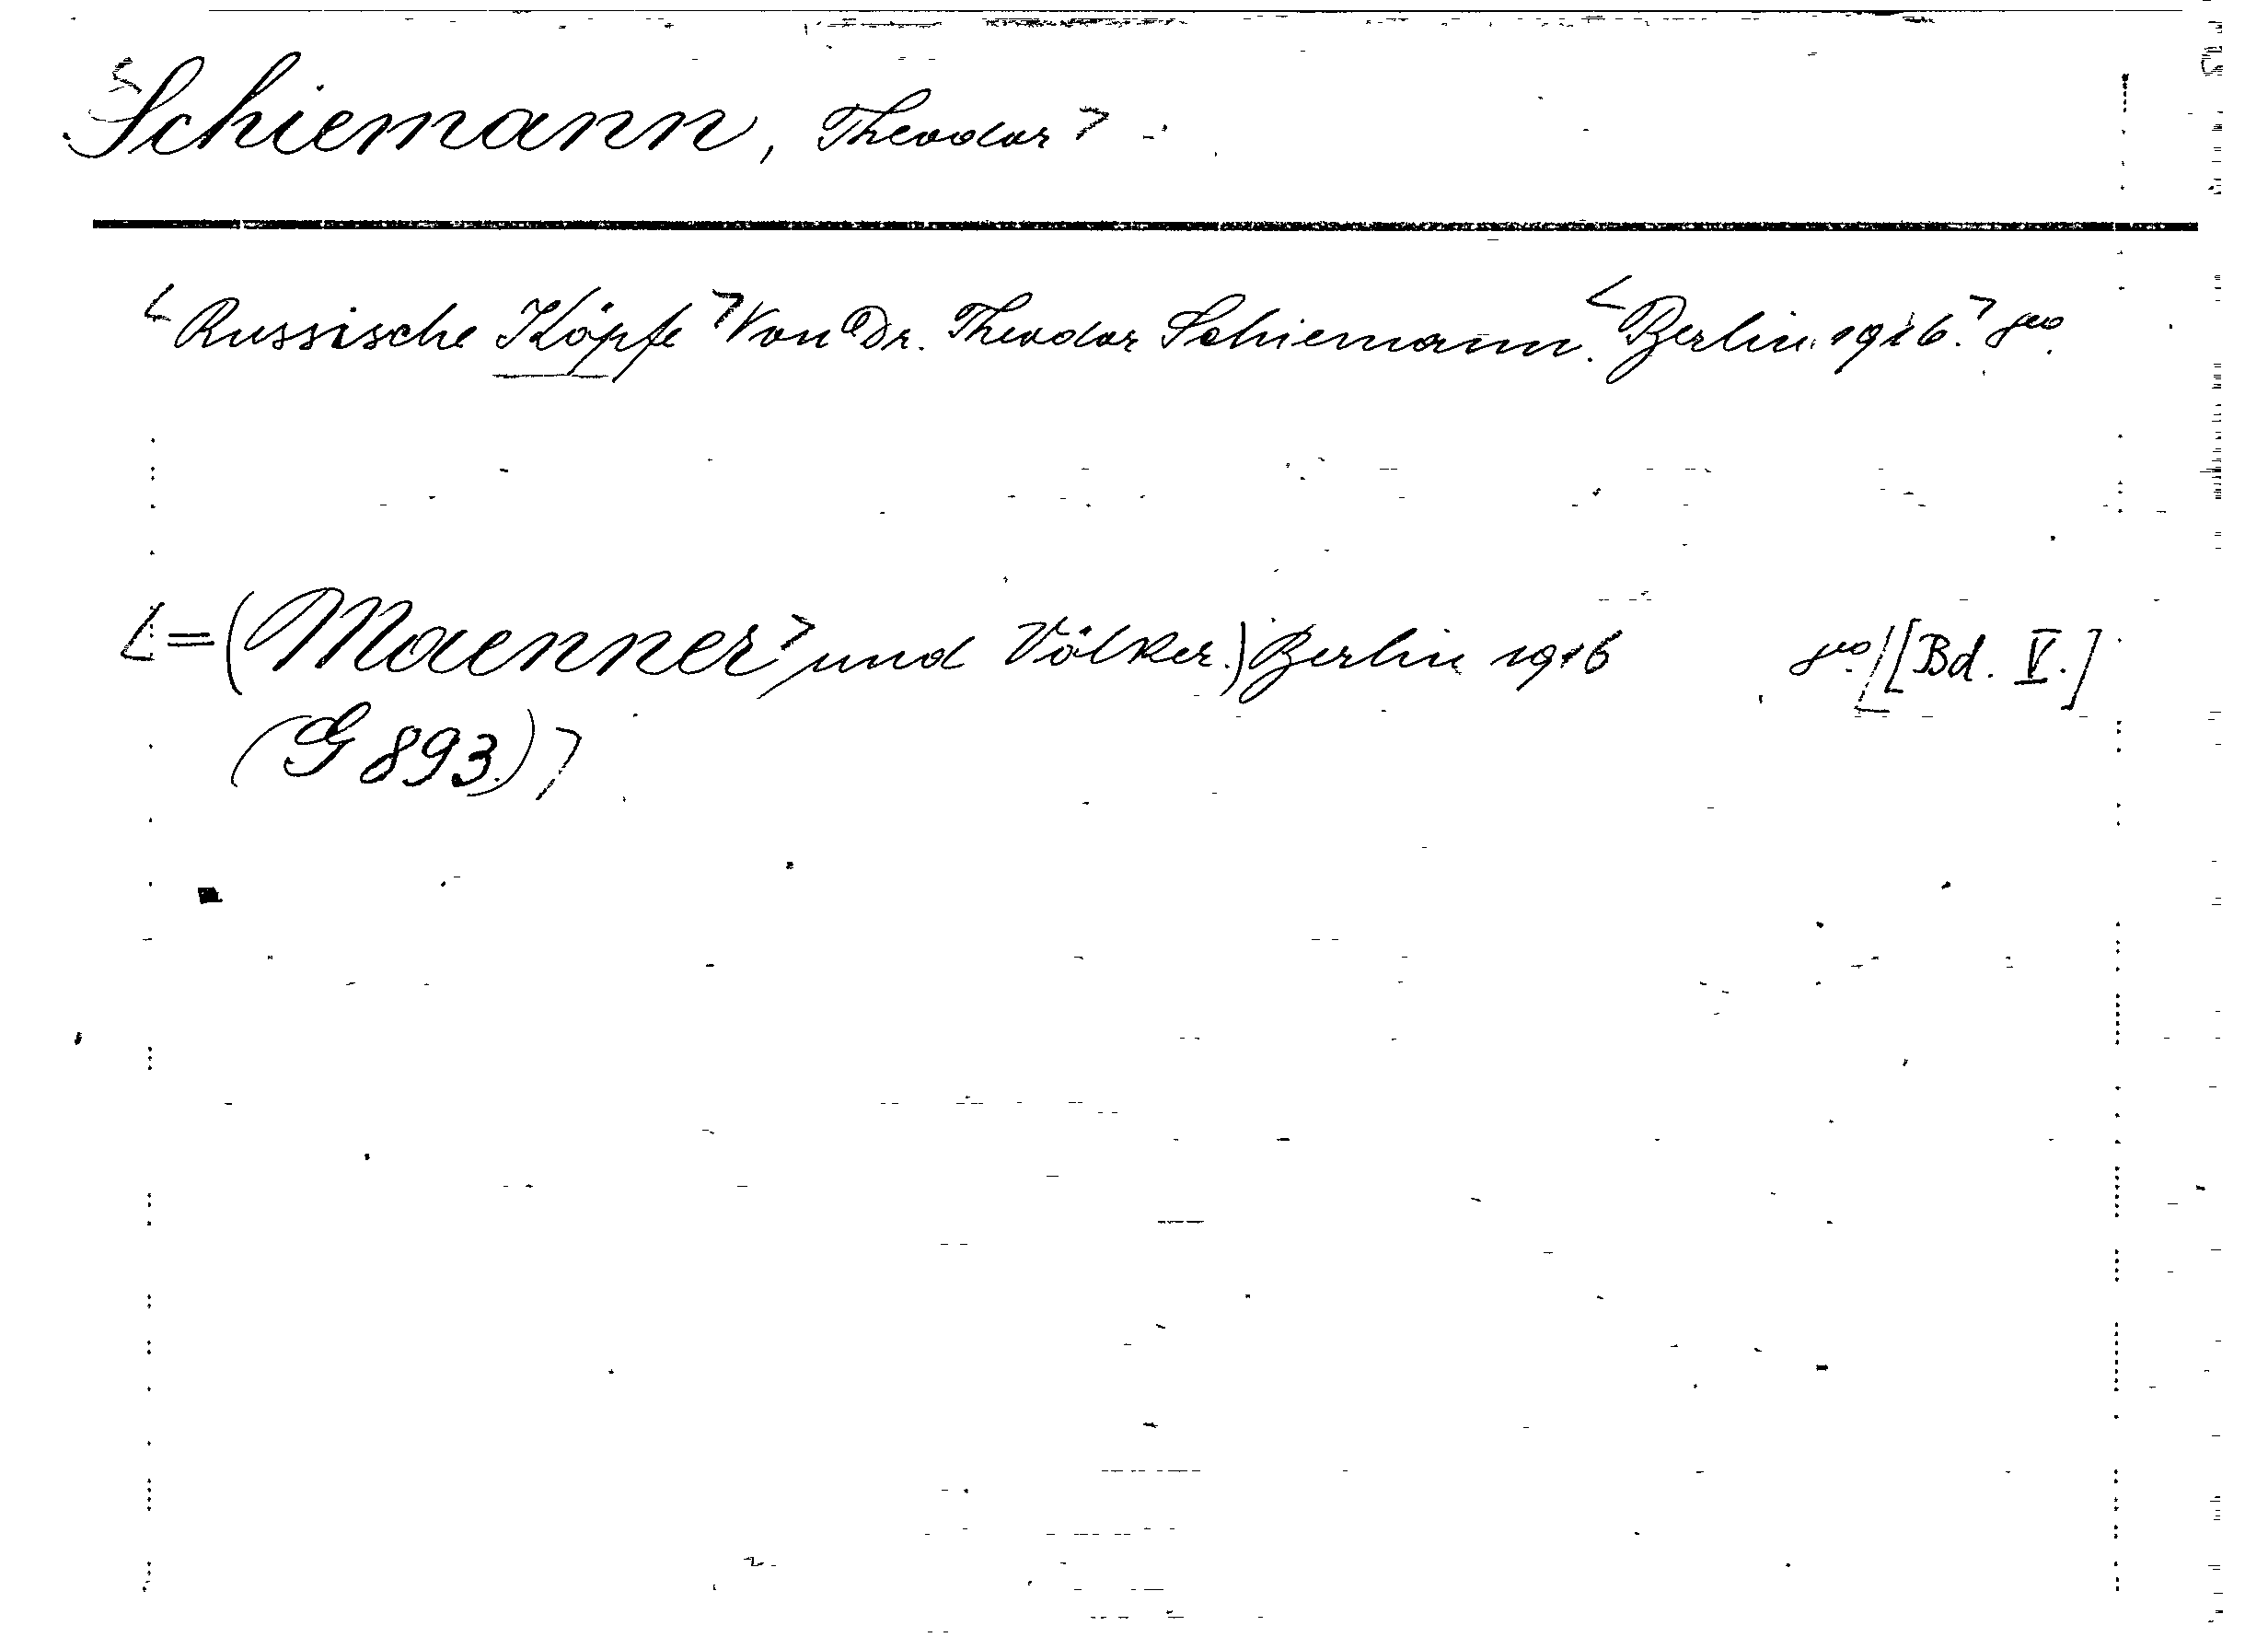 <Schiemann, Theodor>
<Russische Köpfe> Von Dr. Theodor Schiemann. <Berlin 1916.> 8vo.
<=(Maenner> und Völker.) Berlin 1916 8vo. / [Bd. V.]
(G 893.)>